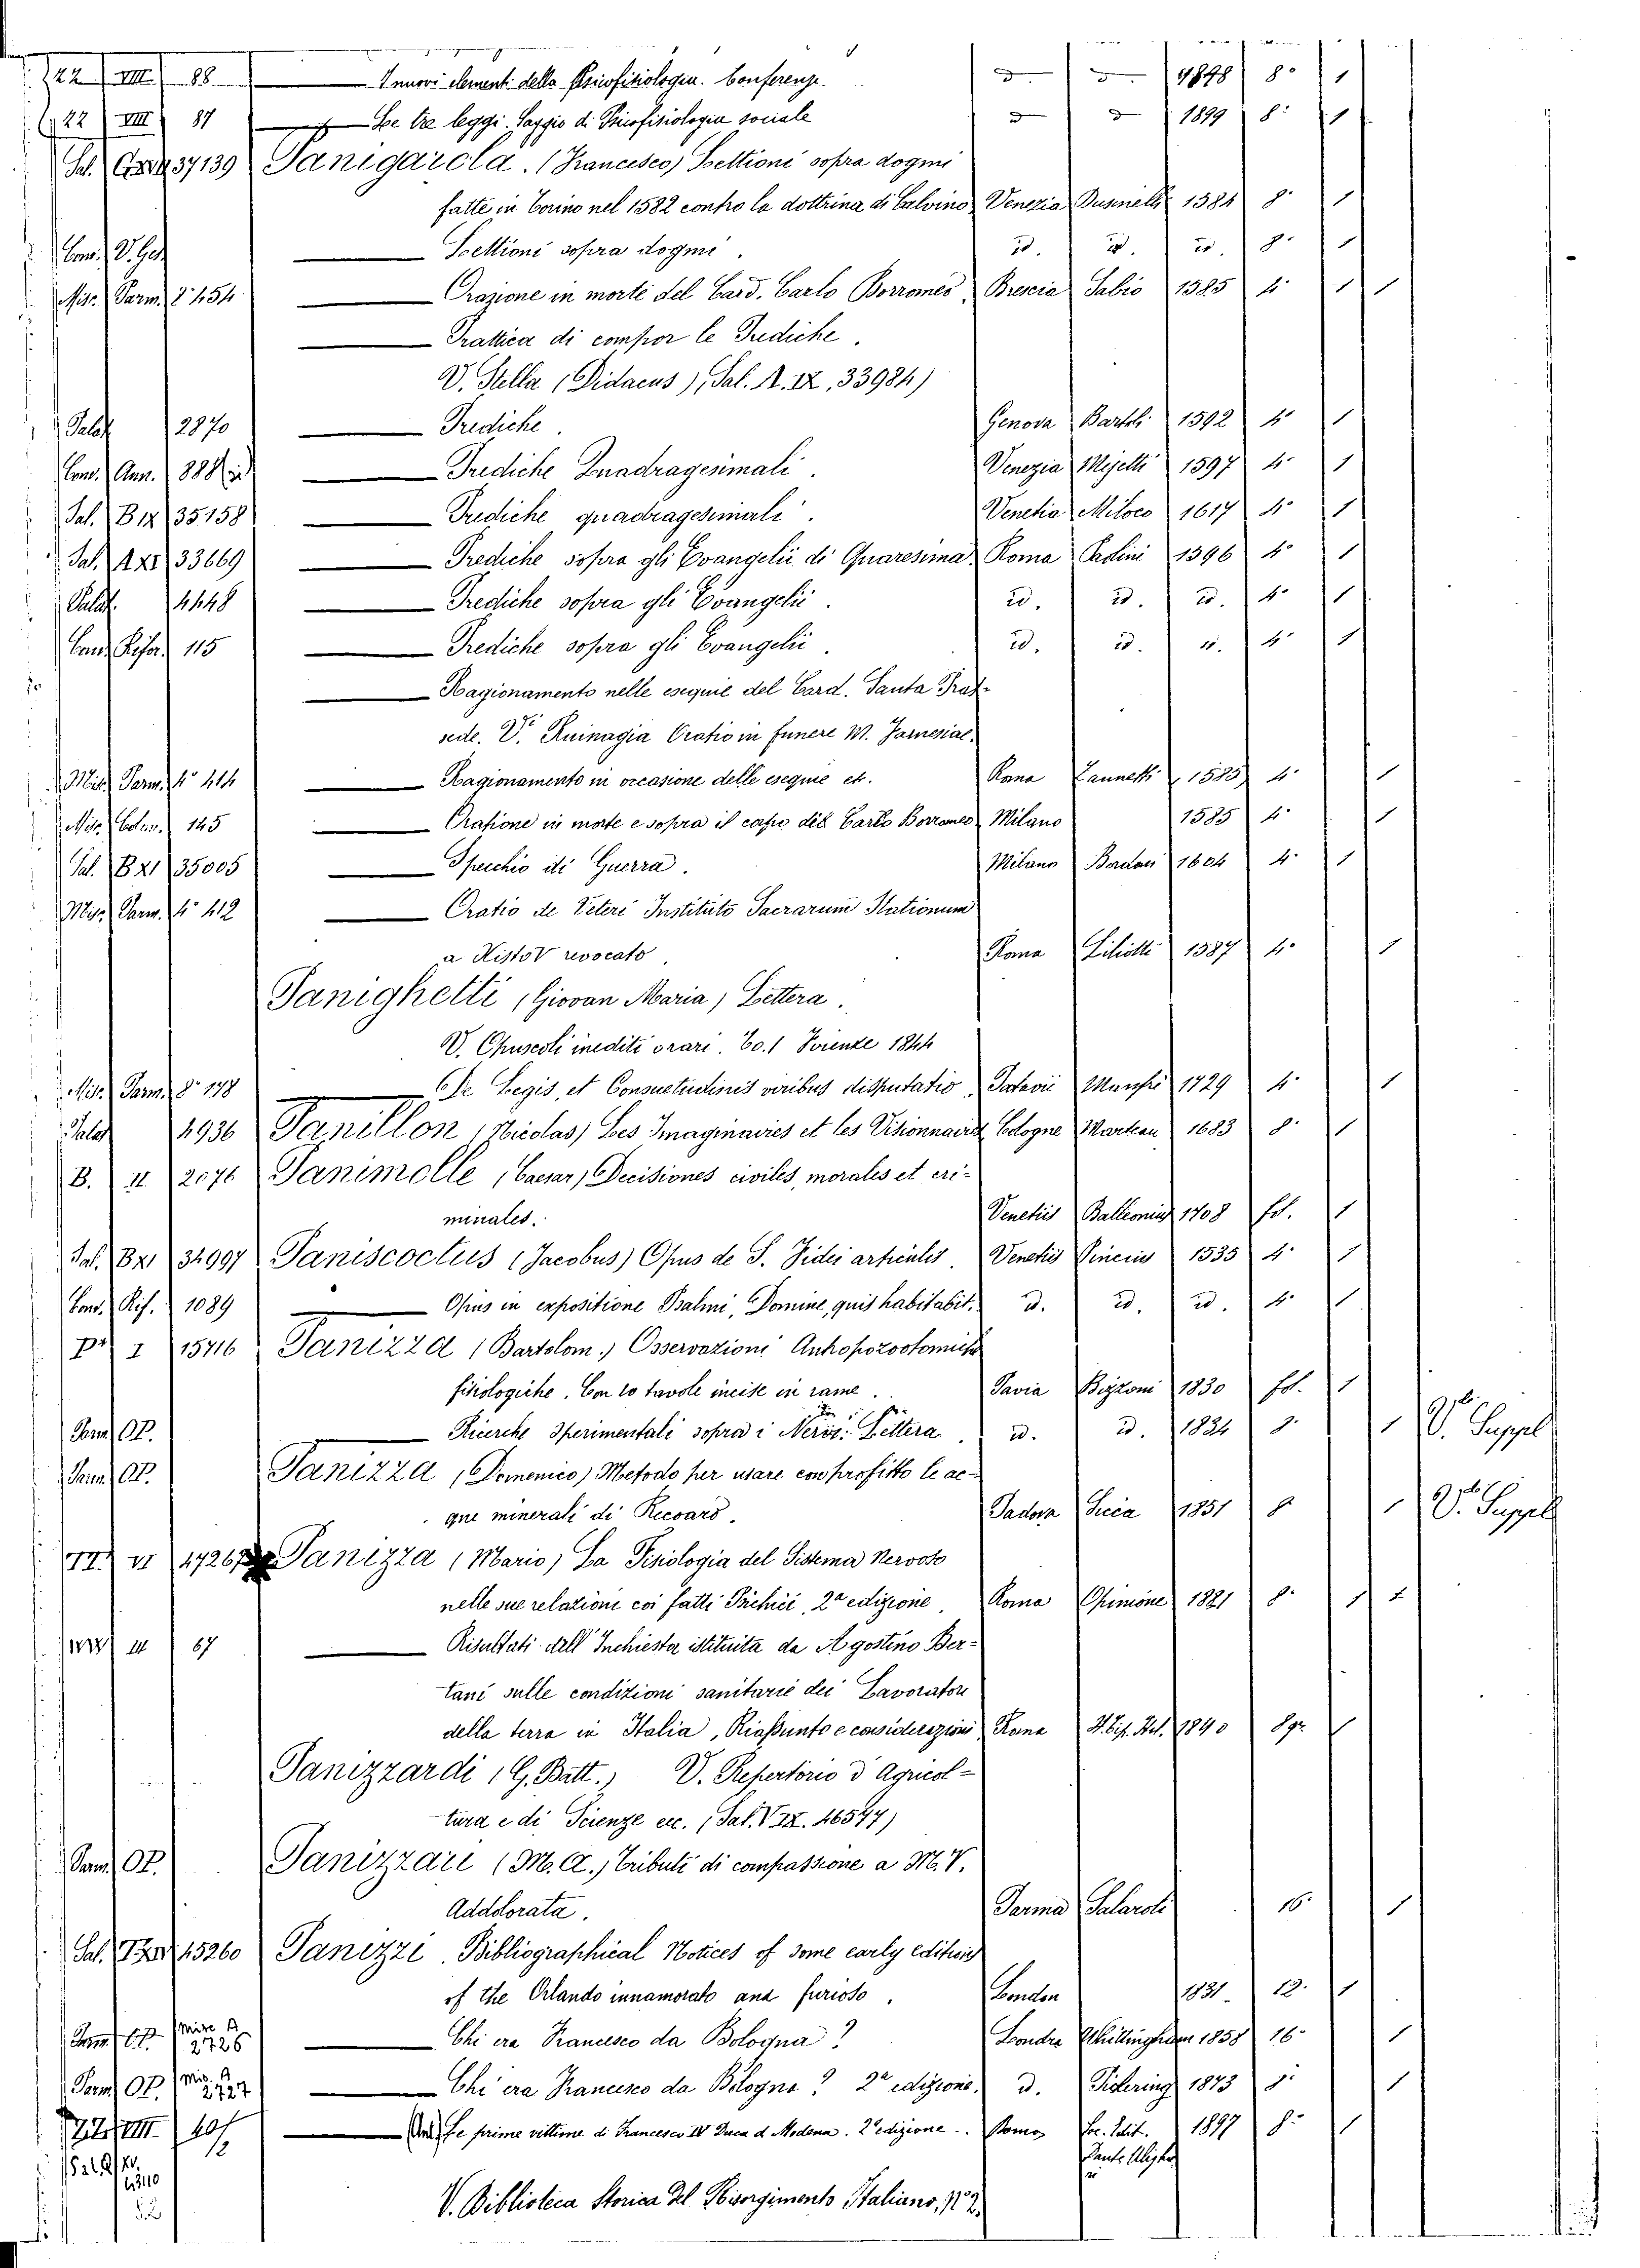 22 VIII 88 — I nuovi elementi della Psicofisiologia. Conferenze. id — id — 1898 8° 1
22 VIII 87 — Le tre leggi. Saggio di Psicofisiologia sociale id — id — 1899 8° 1
Sal. 37139 Panigarola. (Francesco) Lettioni sopra dogmi
fatte in Torino nel 1582 contro la dottrina di Calvino Venezia Dusinelli 1584 8° 1
— Lettioni sopra dogmi. id. id. id. 8° 1
Misc. Parm. 8° 454 — Orazione in morte del Card. Carlo Borromeo, Brescia Sabio 1585 4° 1
— Prattica di compor le Prediche.
V. Stella (Didacus), Sal. A. IX, 33984)
Palat 2870 — Prediche. Genova Bartoli 1592 4° 1
Cond. Ann. 888 — Prediche Quadragesimali. Venezia Mejetti 1597 4° 1
Sal. B IX 35158 — Prediche quadragesimali. Venetia Miloco 1617 4° 1
Sal. A XI 33669 — Prediche sopra gli Evangelii di Quaresima, Roma Paolini 1596 4° 1
Palat. 4448 — Prediche sopra gli Evangelii. id. id. id. 4° 1
Cond. Rifor. 115 — Prediche sopra gli Evangelii. id. id. id. 4° 1
— Ragionamento nelle esequie del Card. Santa Pras-
sede. V. Ruinagia Oratio in funere M. Farnesiae.
Misc. Parm. 4° 414 — Ragionamento in occasione delle esequie etc. Roma Zannetti 1585 4° 1
Misc. 145 — Orasione in morte e sopra il corpo del Carlo Borromeo, Milano 1585 4° 1
Sal. B XI 35005 — Specchio di Guerra. Milano Bordoni 1604 4° 1
Misc. Parm. 4° 412 — Oratio de Veteri Instituto Sacrarum Stationum
a Xisto V revocato. Roma Liliotti 1587 4° 1
Panighetti (Giovan Maria) Lettera.
V. Opuscoli inediti o rari. To. 1 Firenze 1844
Misc. Parm. 8° 178 — De Legis, et Consuetudinis viribus disputatio, Patavii Manfrè 1729 4° 1
Palat 4936 Panillon (Nicolas) Les Imaginaires et les Visionnaires Cologne Marteau 1683 8° 1
B. II 2076 Panimolle (Caesar) Decisiones civiles, morales et cri-
minales. Venetiis Balleoniis 1708 fol. 1
Sal. B XI 34997 Paniscoctus (Jacobus) Opus de S. Fidei articulis. Venetiis Pincius 1535 4° 1
Cond. Rif. 1089 — Opus in expositione Psalmi, Domine, quis habitabit. id. id. id. 4° 1
I 15716 Panizza (Bartolom.) Osservazioni Antropozootomico
fisiologiche. Con 10 tavole incise in rame. Pavia Bizzoni 1830 fol. 1
Parm. OP. — Ricerche Sperimentali sopra i Nervi. Lettera. id. id. 1834 8° 1 V. Suppl
Parm. OP. Panizza (Domenico) Metodo per usare con profitto le ac-
que minerali di Recoaro. Padova Sicca 1851 8° 1 V. Suppl
VI 47267 Panizza (Mario) La Fisiologia del Sistema Nervoso
nelle sue relazioni coi fatti Psichici, 2ª edizione. Roma Opinione 1881 8° 1
III 67 — Risultati dell'Inchiesta istituita da Agostino Ber-
tani sulle condizioni sanitarie dei Lavoratori
della terra in Italia, Riassunto e considerazioni Roma 1890 8° gr.
Panizzardi (G. Batt.) V. Repertorio d'Agricol-
tura e di Scienze ecc. (Sal. V IX. 46577)
Parm. OP. Panizzari (M. A.) Tributi di compassione a M. V.
Addolorata. Parma Salaroli 16° 1
Sal. 45260 Panizzi. Bibliographical Notices of some early editions
of the Orlando innamorato and furioso. London 1831 12° 1
Parm. OP. Misc. A 2726 — Chi era Francesco da Bologna? Londra Whittingham 1858 16° 1
Parm. OP. Mis. A 2727 — Chi era Francesco da Bologna? 2ª edizione. id. Pickering 1873 8° 1
22 VIII — (Ant.) Le prime vittime di Francesco IV Duca di Modena. 2ª edizione. Roma Soc. Edit. 1897 8° 1
Dante Alighieri
V. Biblioteca Storica del Risorgimento Italiano, N° 2.